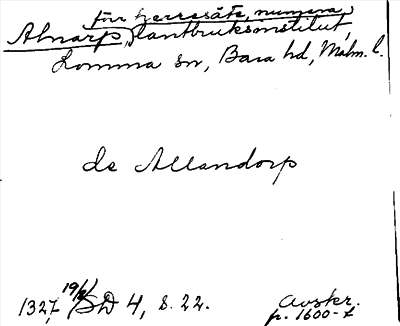 förr herresäte, numera
Alnarp, lantbruksinstitut,
Lomma sn, Bara hd, Malm. l.
de Allandorp
1327 19/8 SD 4, s. 22.
Avskr.
p. 1600-t